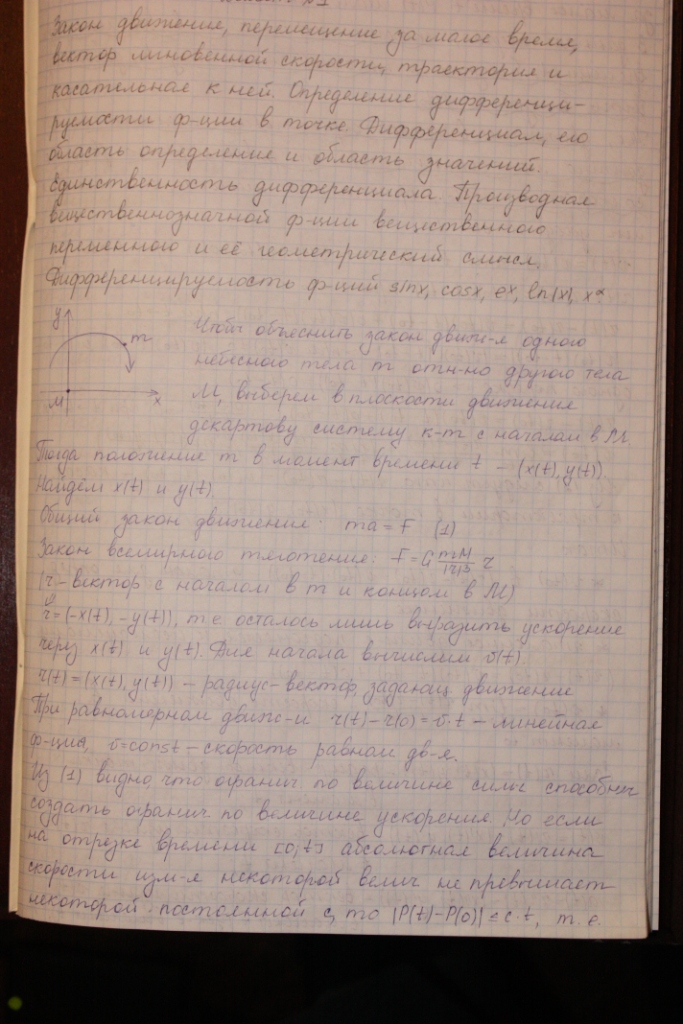 №1
Закон движение, перемещение за малое время,
вектор мгновенной скорости, траектория и
касательная к ней. Определение дифференци-
руемости ф-ции в точке. Дифференциал, его
область определение и область значений.
Единственность дифференциала. Производная
вещественнозначной ф-ции вещественного
переменного и её геометрический смысл.
Дифференцируемость ф-ций sinx, cosx, eˣ, ln|x|, x^α
y
m
M
x
Чтобы объяснить закон движ-я одного
небесного тела m отн-но другого тела
M, выберем в плоскости движения
декартову систему к-т с началом в M.
Тогда положение m в момент времени t – (x(t), y(t))
Найдём x(t) и y(t).
Общий закон движения: ma = F (1)
Закон всемирного тяготения: F = G mM/|r|³ r
(r – вектор с началом в m и концом в M)
r = (-x(t), -y(t)), т.е. осталось лишь выразить ускорение
через x(t) и y(t). Для начала вычислим v(t)
r(t) = (x(t), y(t)) – радиус-вектор, задающ. движение
При равномерном движ-и r(t) - r(0) = v·t – линейная
ф-ция, v = const – скорость равном. дв-я.
Из (1) видно, что огранич. по величине силы способны
создать огранич. по величине ускорения. Но если
на отрезке времени [0, t] абсолютная величина
скорости изм-я некоторой велич. не превышает
некоторой постоянной c, то |P(t) - P(0)| ≤ c·t, т.е.